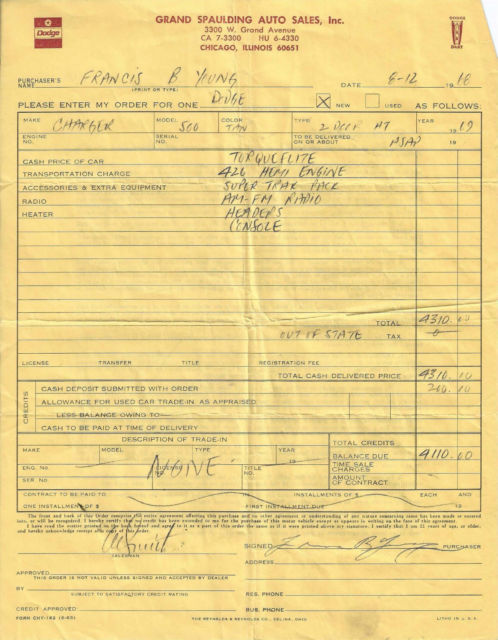 Dodge
GRAND SPAULDING AUTO SALES, Inc.
3300 W. Grand Avenue
CA 7-3300 HU 6-4330
CHICAGO, ILLINOIS 60651
DODGE
DART
PURCHASER'S NAME FRANCIS B YOUNG DATE 6-12 1968
(PRINT OR TYPE)
PLEASE ENTER MY ORDER FOR ONE DODGE X NEW USED AS FOLLOWS:
MAKE CHARGER MODEL 500 COLOR TAN TYPE 2 DOOR HT YEAR 1969
ENGINE NO. SERIAL NO. TO BE DELIVERED ON OR ABOUT ASAP 19
CASH PRICE OF CAR TORQUEFLITE
TRANSPORTATION CHARGE 426 HEMI ENGINE
ACCESSORIES & EXTRA EQUIPMENT SUPER TRAK PACK
RADIO AM-FM RADIO
HEATER HEADERS
CONSOLE
TOTAL 4310.00
OUT OF STATE TAX 0
LICENSE TRANSFER TITLE REGISTRATION FEE
TOTAL CASH DELIVERED PRICE 4310.00
CREDITS
CASH DEPOSIT SUBMITTED WITH ORDER 200.00
ALLOWANCE FOR USED CAR TRADE-IN AS APPRAISED
LESS BALANCE OWING TO
CASH TO BE PAID AT TIME OF DELIVERY
DESCRIPTION OF TRADE-IN TOTAL CREDITS
MAKE MODEL TYPE YEAR 19 BALANCE DUE 4110.00
ENG. NO. LICENSE NONE TITLE NO. TIME SALE CHARGES
SER. NO. AMOUNT OF CONTRACT
CONTRACT TO BE PAID TO INSTALLMENTS OF $ EACH AND
ONE INSTALLMENT OF $ FIRST INSTALLMENT DUE 19
The front and back of this Order comprise the entire agreement affecting this purchase and no other agreement or understanding of any nature concerning same has been made or entered
into, or will be recognized. I hereby certify that no credit has been extended to me for the purchase of this motor vehicle except as appears in writing on the face of this agreement.
I have read the matter printed on the back hereof and agree to it as a part of this order the same as if it were printed above my signature. I certify that I am 21 years of age, or older,
and hereby acknowledge receipt of a copy of this order.
SALESMAN SIGNED PURCHASER
ADDRESS
APPROVED
THIS ORDER IS NOT VALID UNLESS SIGNED AND ACCEPTED BY DEALER
BY
SUBJECT TO SATISFACTORY CREDIT RATING RES. PHONE
CREDIT APPROVED BUS. PHONE
THE REYNOLDS & REYNOLDS CO., CELINA, OHIO LITHO IN U.S.A.